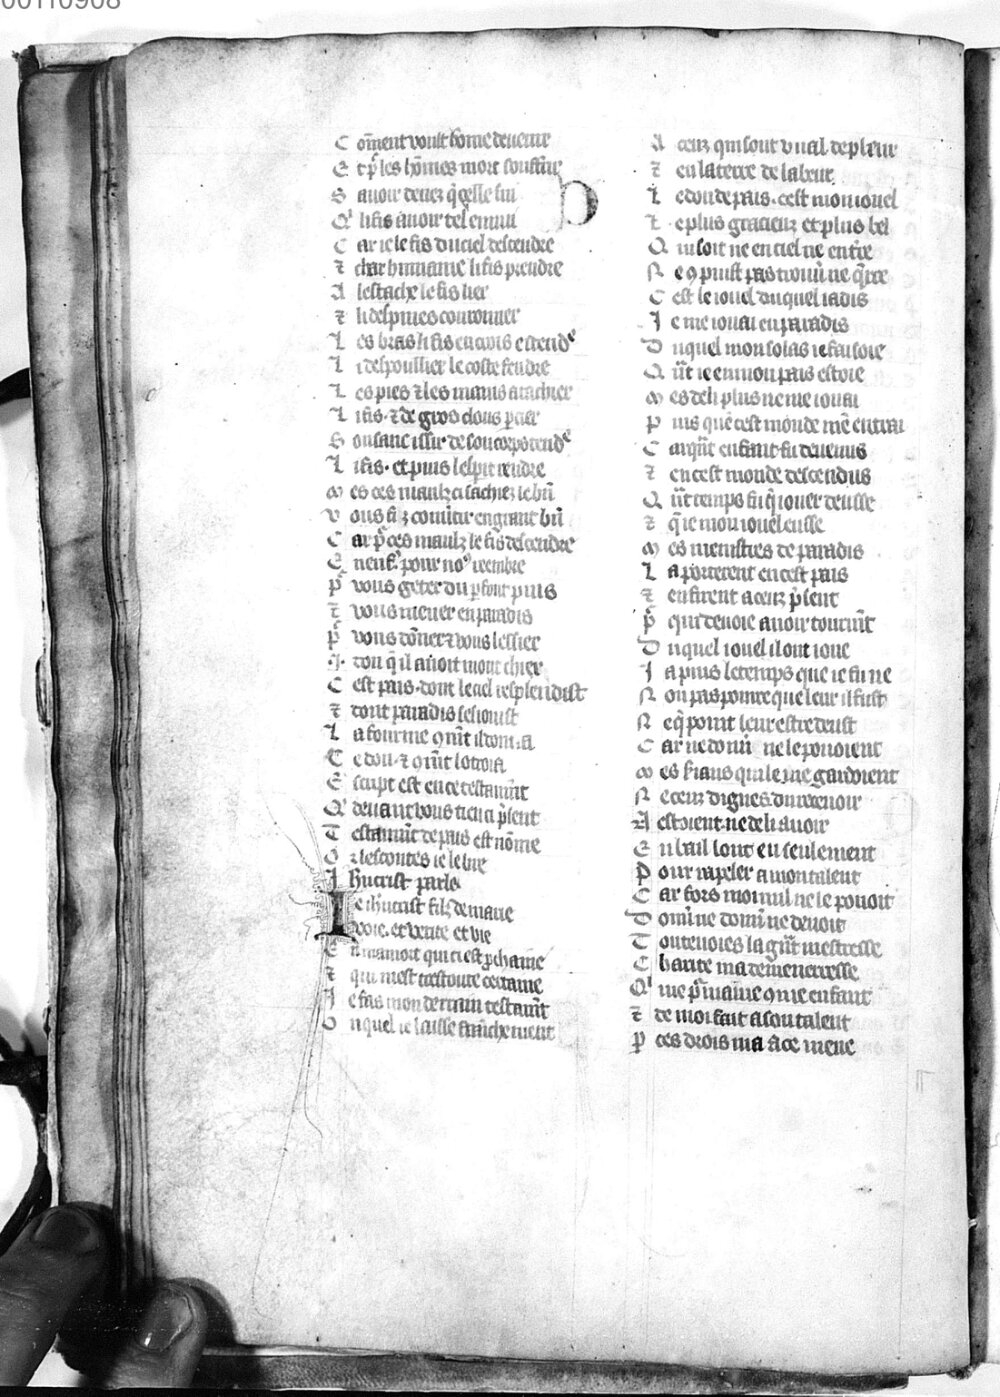 00110908
C om̄ent voult home deuenir
E t p̄ les hōmes mort soustenir
S auoir deuez q̄ celle fu
Q' li fis auoir tel ennui
C ar ie le fis du ciel descendre
⁊ char humaine li fis prendre
A lestache le fis lier
⁊ li despines couronner
L es bras li fis en crois estendre
L i despoullier le coste fendre
L es pies ⁊ les mains atachier
L i fis ⁊ de gros clous percier
S on sanc issir de son corps
L i fis et puis lesprit rendre
M es ces maulx ci sachiez le bn̄
V ous fu conuertir en grant bn̄
C ar p̄ ces maulx le fis descendre
E n enf. pour nous reembre
P̄ vous geter du parfont puis
⁊ vous mener en paradis
P̄ vous dōner ⁊ vous lessier
.I. don q̄ il auoit mont chier
C est pais dont le ciel resplendist
⁊ dont paradis sesioist
L a fourme q̄ment il donna
C e don ⁊ q̄ment lotroia
E script est en ce testament
Q' deuant vous tien ci p̄sent
T estament de pais est nōme
O r lescoutes ie le lire
Ihūcrist parle
I e ihūcrist filz de marie
voie et verite et vie
E n ma mort qui ci est p̄chaine
⁊ qui mest trestoute certaine
I e fais mon derrain testam̄t
O uquel ie laisse franchement
A ceux qui sont v ual de pleur
⁊ en la terre de labeur
L e don de pais cest mon iouel
L e plus gracieux et plus bel
Q ui soit ne en ciel ne en t̄re
N e q̄ puist pas trouuer ne q̄rre
C est le iouel duquel iadis
I e me iouai en paradis
D uquel mon solas ie faisoie
Q ūt ie en mon pais estoie
M es deli plus ne me iouai
P uis que cest monde mē entrai
C ar qūt enfant fu deuenus
⁊ en cest monde descendus
Q ūt temps fu q̄ iouer deusse
⁊ q̄ ie mon iouel eusse
M es menistres de paradis
L aporterent en cest pais
⁊ en firent a ceux p̄sent
P̄ qui deuoie auoir tourm̄t
D uquel iouel il ont ioue
I a puis le temps que ie fu ne
N on pas pource que leur il fust
N e q̄ point leur estre deust
C ar ne donn̄ ne le pouoient
M es frans qui le me gardoient
N e ceux dignes du receuoir
N estoient ne de li auoir
E n bail lont eu seulement
P our rapeler a mon talent
C ar fors moi nul ne le pouoit
D onn̄ ne donn̄ ne deuoit
T outeuoies la grant mestresse
C harite ma demeneresse
Q' me p̄maine q̄me enfant
⁊ de moi fait a son talent
P ces drois ma a ce mene